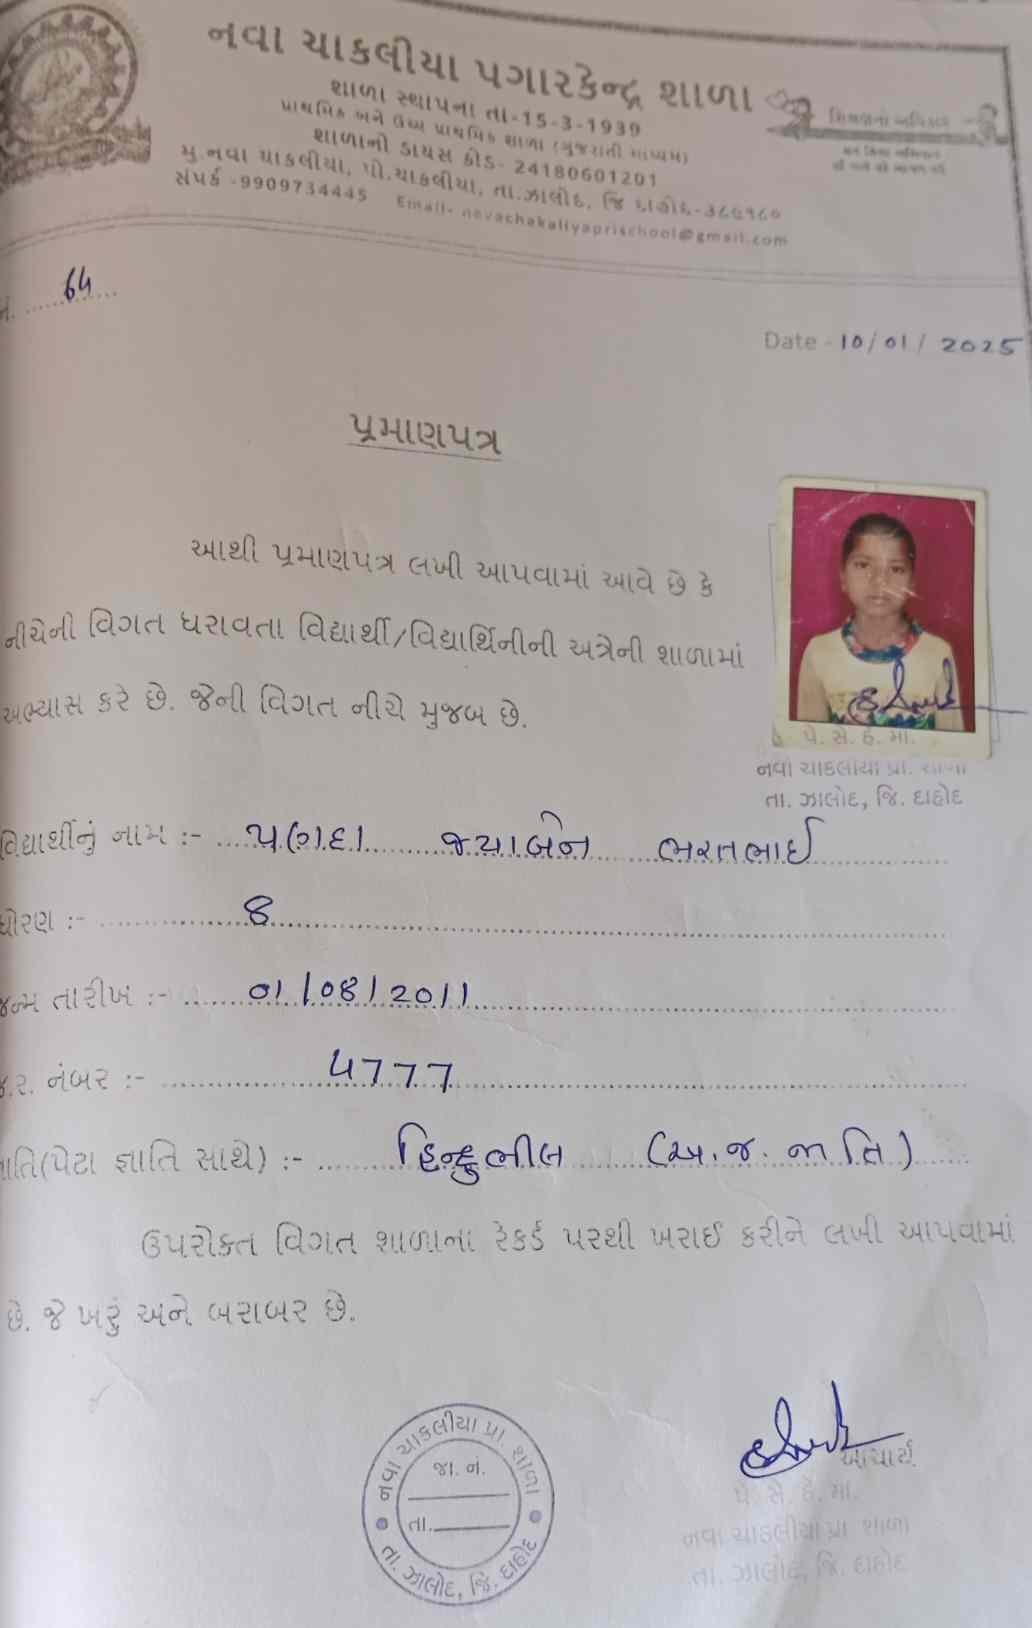 નવા ચાકલીયા પગારકેન્દ્ર શાળા
શાળા સ્થાપના તા-15-3-1939
પ્રાથમિક અને ઉચ્ચ પ્રાથમિક શાળા (ગુજરાતી માધ્યમ)
શાળાનો ડાયસ કોડ- 24180601201
મુ.નવા ચાકલીયા, પો.ચાકલીયા, તા.ઝાલોદ, જિ દાહોદ-૩૮૯૧૮૦
સંપર્ક -9909734445 Email- navachakaliyaprischool@gmail.com
64
Date - 10/01/2025
પ્રમાણપત્ર
આથી પ્રમાણપત્ર લખી આપવામાં આવે છે કે
નીચેની વિગત ધરાવતા વિદ્યાર્થી/વિદ્યાર્થિનીની અત્રેની શાળામાં
અભ્યાસ કરે છે. જેની વિગત નીચે મુજબ છે.
પે. સે. હે. મા.
નવા ચાકલીયા પ્રા. શાળા
તા. ઝાલોદ, જિ. દાહોદ
વિદ્યાર્થીનું નામ :- પણદા જયાબેન ભરતભાઈ
ધોરણ :- 8
જન્મ તારીખ :- 01/08/2011
જ.ર. નંબર :- 4777
જાતિ(પેટા જ્ઞાતિ સાથે) :- હિન્દુભીલ (અ.જ.જાતિ)
ઉપરોક્ત વિગત શાળાના રેકર્ડ પરથી ખરાઈ કરીને લખી આપવામાં
છે. જે ખરું અને બરાબર છે.
નવા ચાકલીયા પ્રા. શાળા
જા. નં.
તા.
તા. ઝાલોદ, જિ. દાહોદ
આચાર્ય
પે. સે. હે. મા.
નવા ચાકલીયા પ્રા શાળા
તા. ઝાલોદ, જિ. દાહોદ